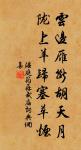 雲邊雁斷胡天月
隴上羊歸塞草煙
溫庭筠蘇武廟詩